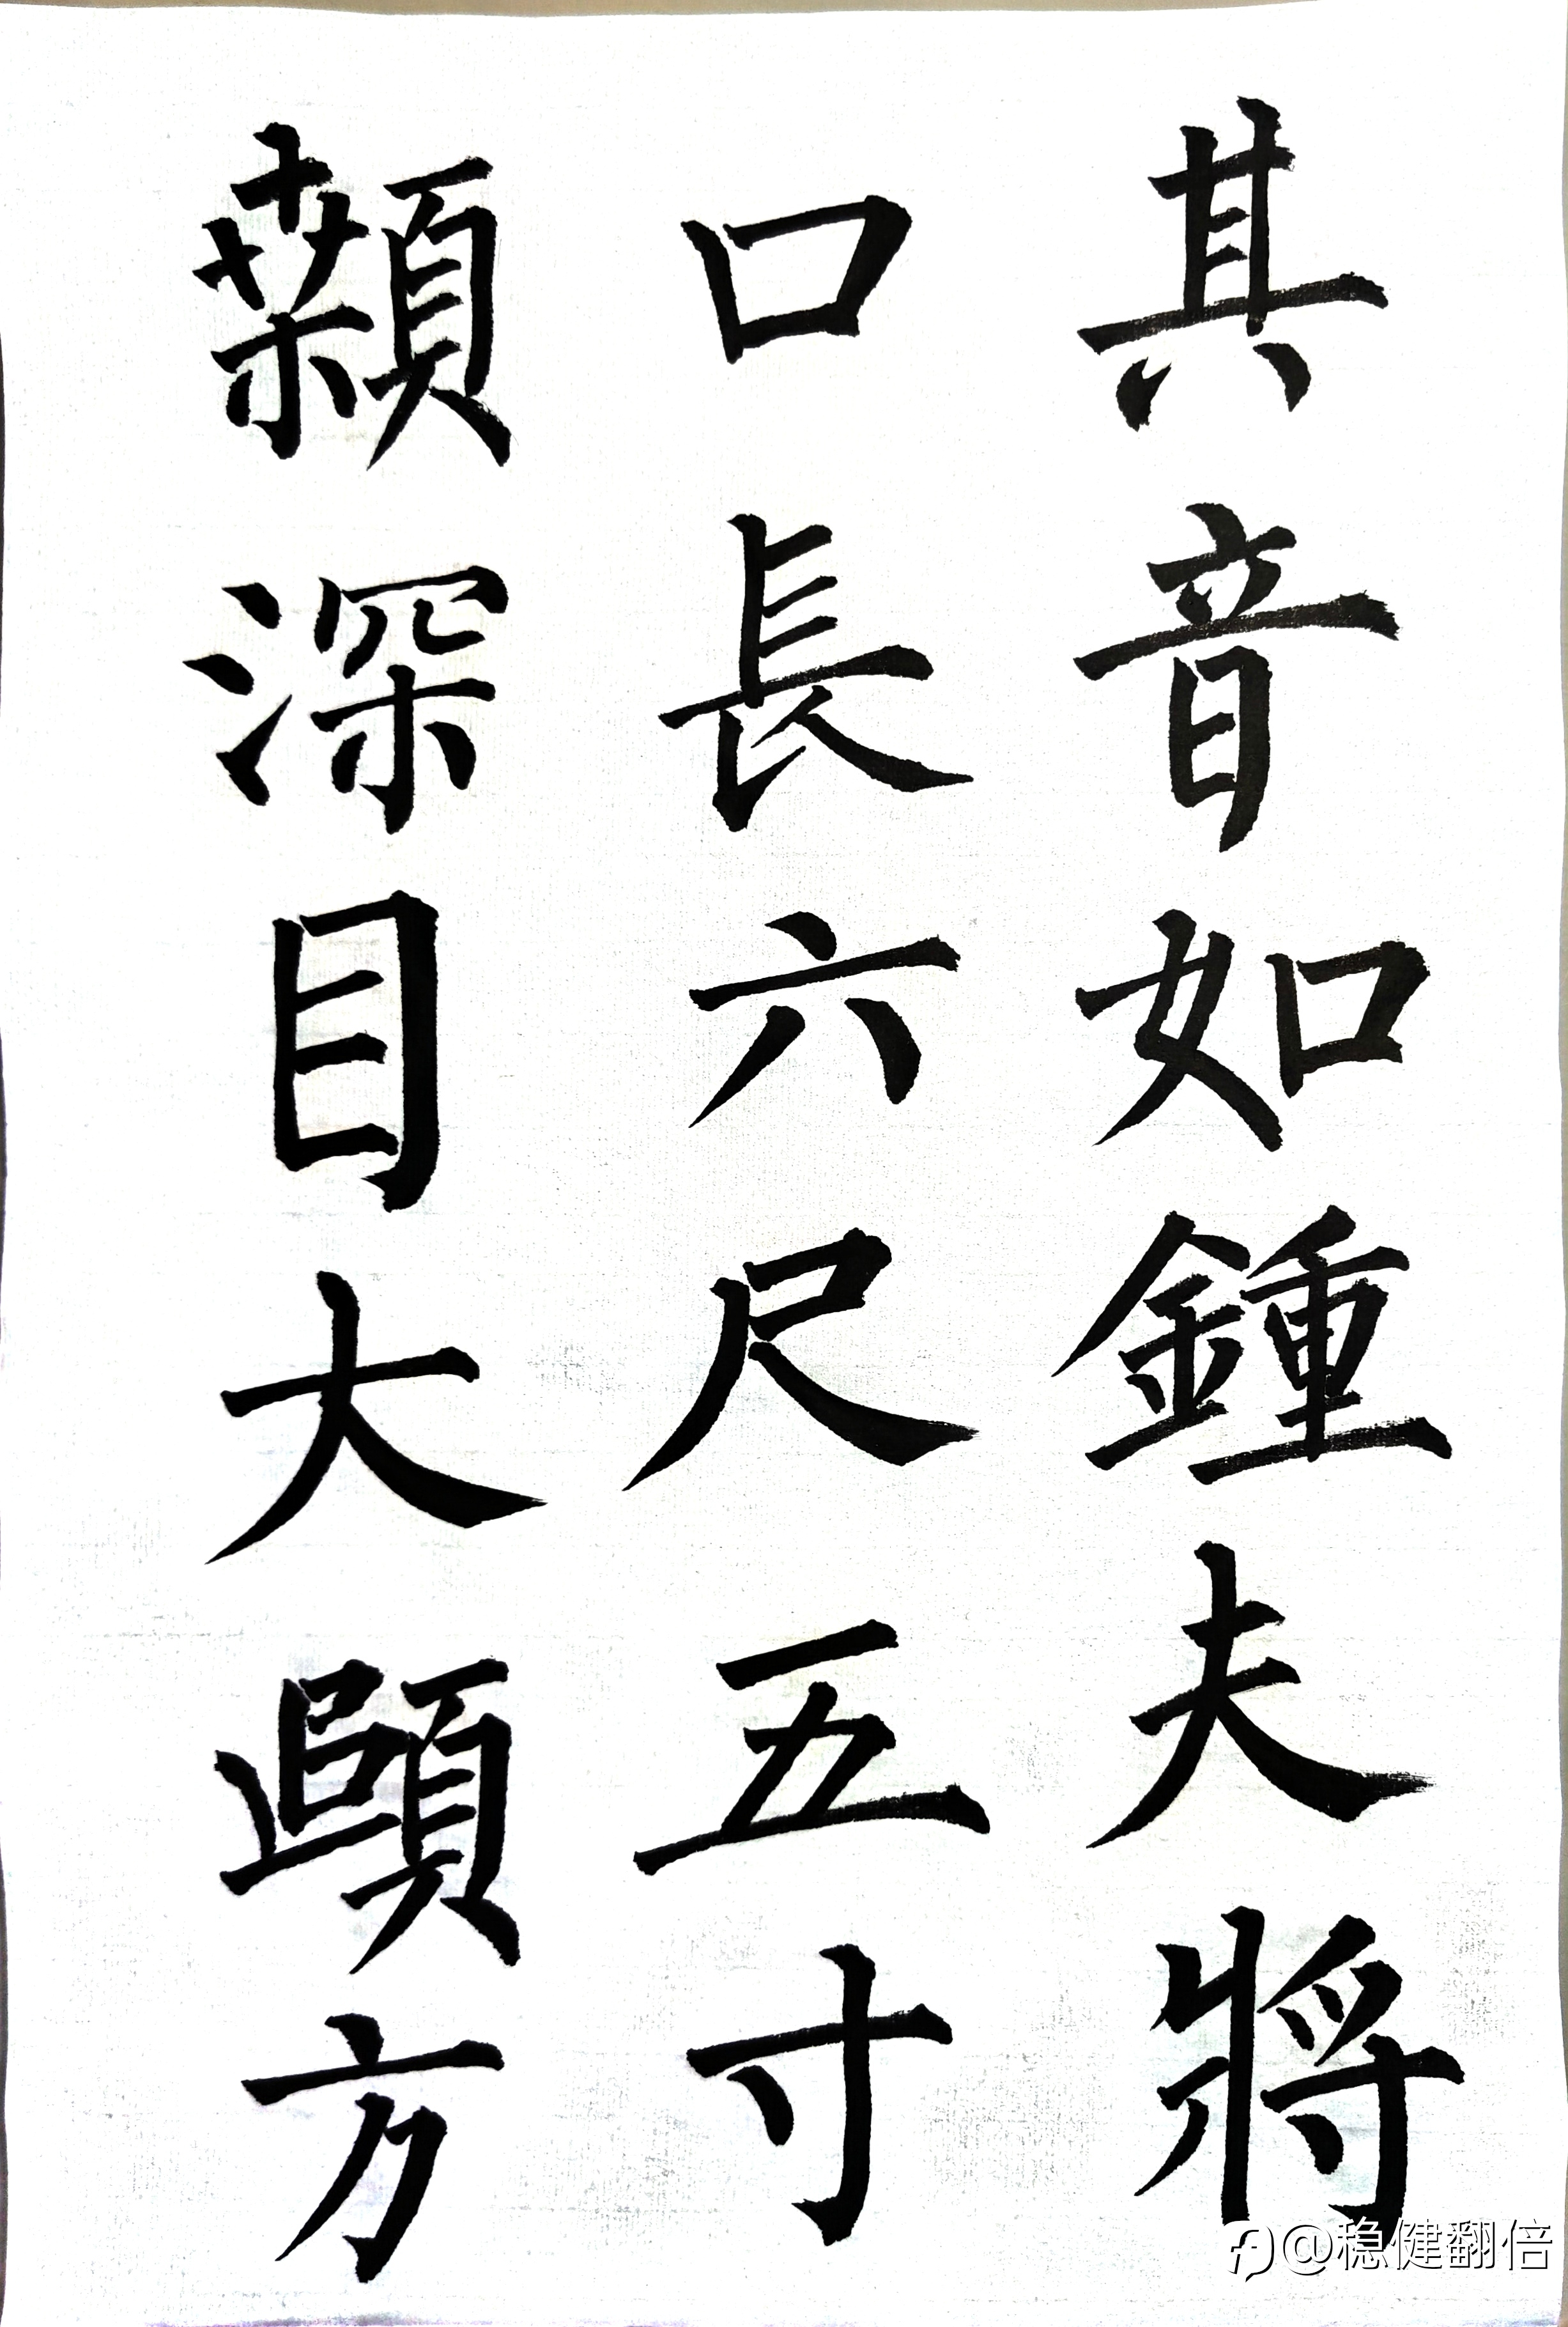 顙深目大頤方
口長六尺五寸
其音如鍾夫將
@稳健翻倍